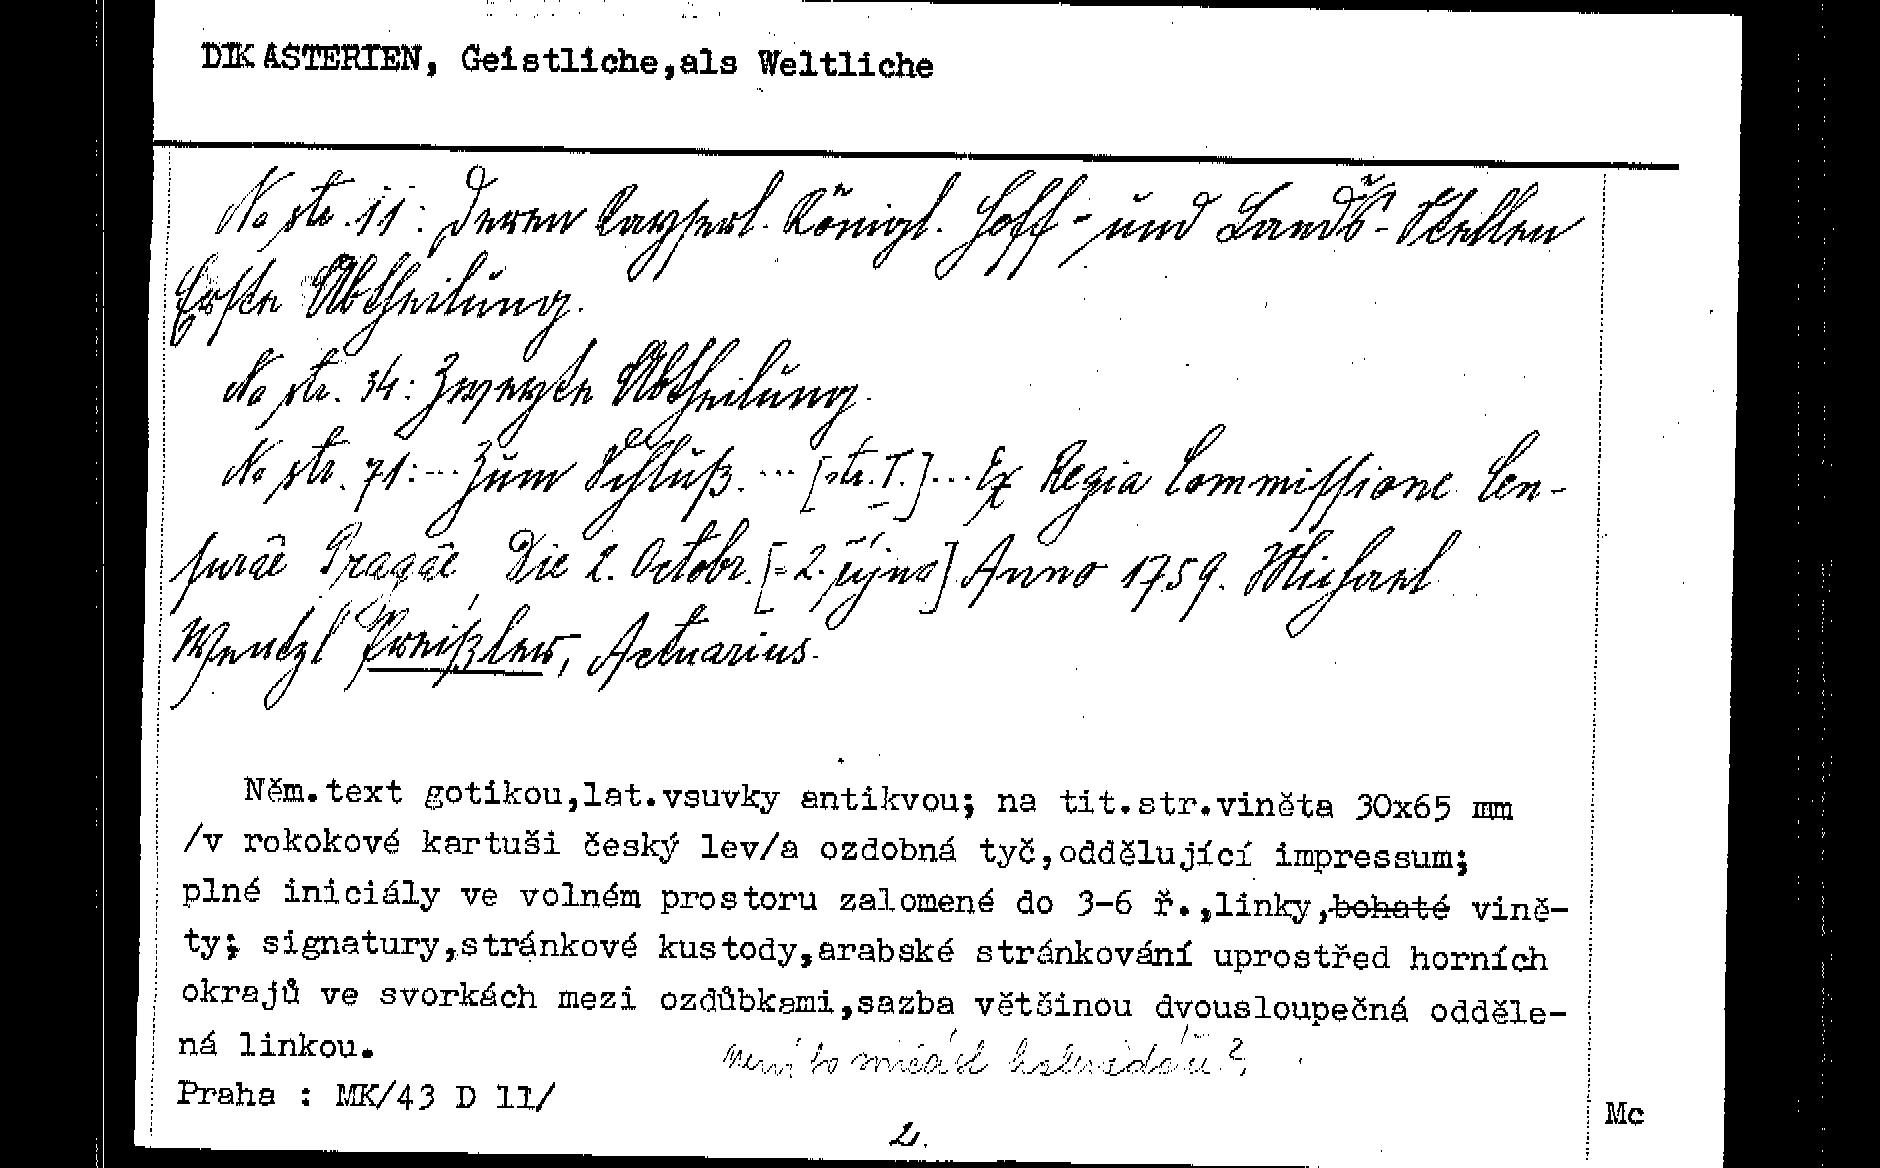 DIKASTERIEN, Geistliche,als Weltliche
Na str. 11: Deren Kayserl. Königl. Hoff- und Lands-Stellen
Erste Abtheilung.
Na str. 34: Zweyte Abtheilung.
Na str. 71: ... Zum Schluß. ... [str. T.] ... Ex Regia Commissione Cen-
surae Pragae, Die 2. Octobr. [= 2. října] Anno 1759. Michael
Wentzl Preißler, Actuarius.
Něm.text gotikou,lat.vsuvky antikvou; na tit.str.viněta 30x65 mm
/v rokokové kartuši český lev/a ozdobná tyč,oddělující impressum;
plné iniciály ve volném prostoru zalomené do 3-6 ř.,linky,bohaté vině-
ty; signatury,stránkové kustody,arabské stránkování uprostřed horních
okrajů ve svorkách mezi ozdůbkami,sazba většinou dvousloupečná odděle-
ná linkou.
není to součást kalendáře?
Praha : MK/43 D 11/
Mc
2.